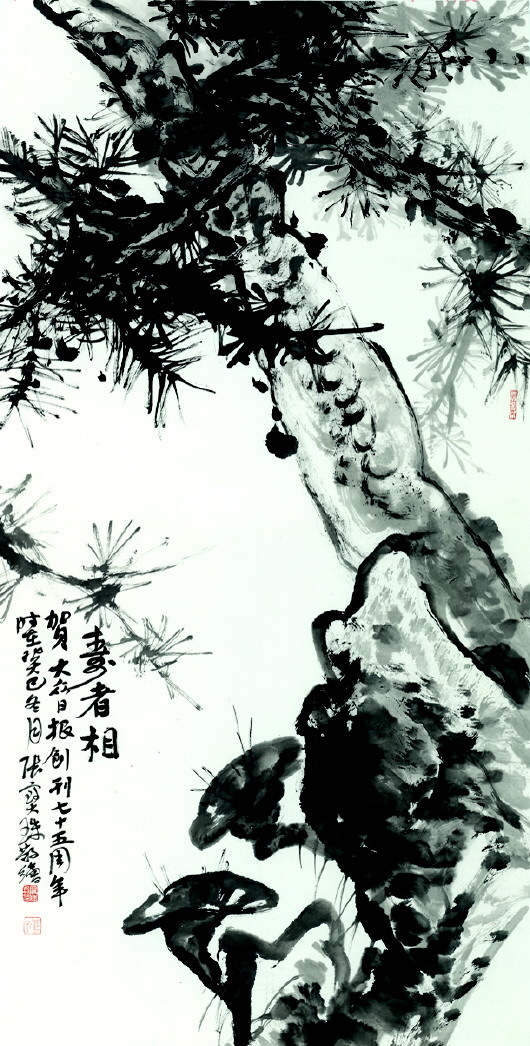 寿者相
贺大众日报创刊七十五周年
时在癸巳冬月张宝珠敬绘